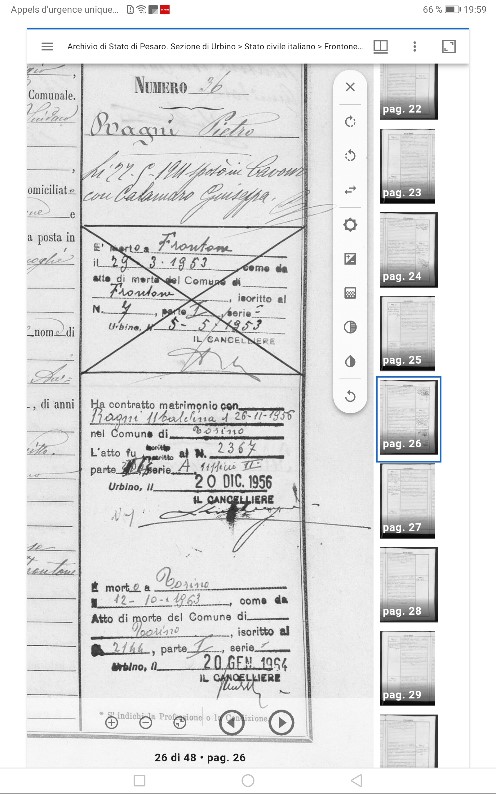 Appels d'urgence unique...
66 %
19:59
Archivio di Stato di Pesaro. Sezione di Urbino > Stato civile italiano > Frontone...
Comunale.
omiciliate
e
a posta in
nom di
, di anni
NUMERO 36
Ragni Pietro
Li 27. 1911 sposò in Cavour
con Calandro Giuseppa.
E' morto a Frontone
il 29 3-1953 come da
atto di morte del Comune di
Frontone, iscritto al
N. 7, parte I, serie -
Urbino, li 5-5/1953
IL CANCELLIERE
Ha contratto matrimonio con
Ragni Ubaldina il 26-11-1956
nel Comune di Torino
L'atto fu iscritto al N. 2367
parte serie A ufficio II
Urbino, li 20 DIC. 1956
IL CANCELLIERE
È morto a Torino
12-10-1963, come da
Atto di morte del Comune di
Torino, iscritto al
2144, parte I, serie -
Urbino, li 20 GEN. 1964
IL CANCELLIERE
* S'indichi la Professione o la Condizione
26 di 48 • pag. 26
pag. 22
pag. 23
pag. 24
pag. 25
pag. 26
pag. 27
pag. 28
pag. 29